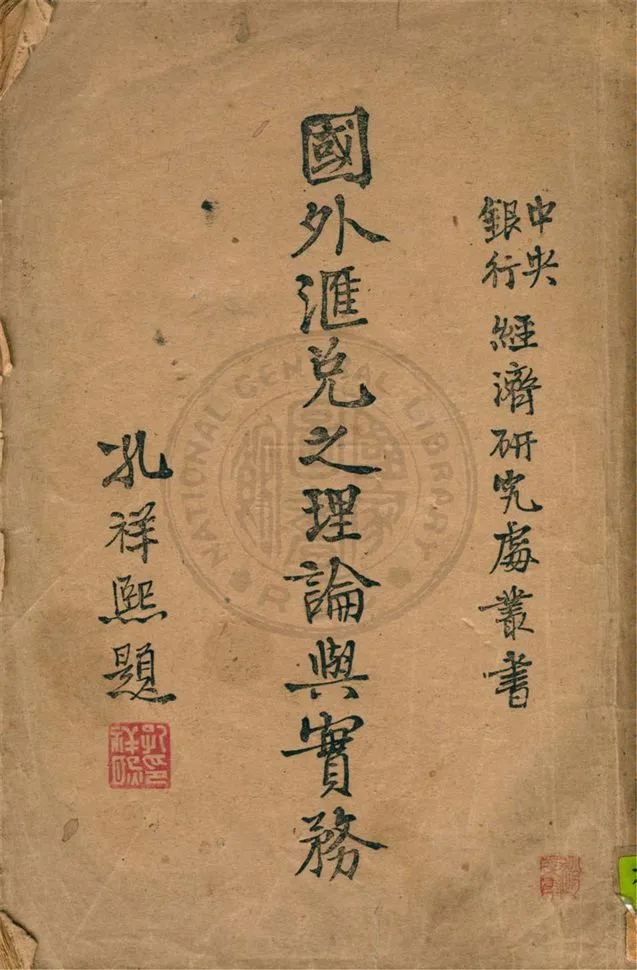 中央
銀行
經濟研究處叢書
國外滙兌之理論與實務
孔祥熙題
NATIONAL CENTRAL LIBRARY